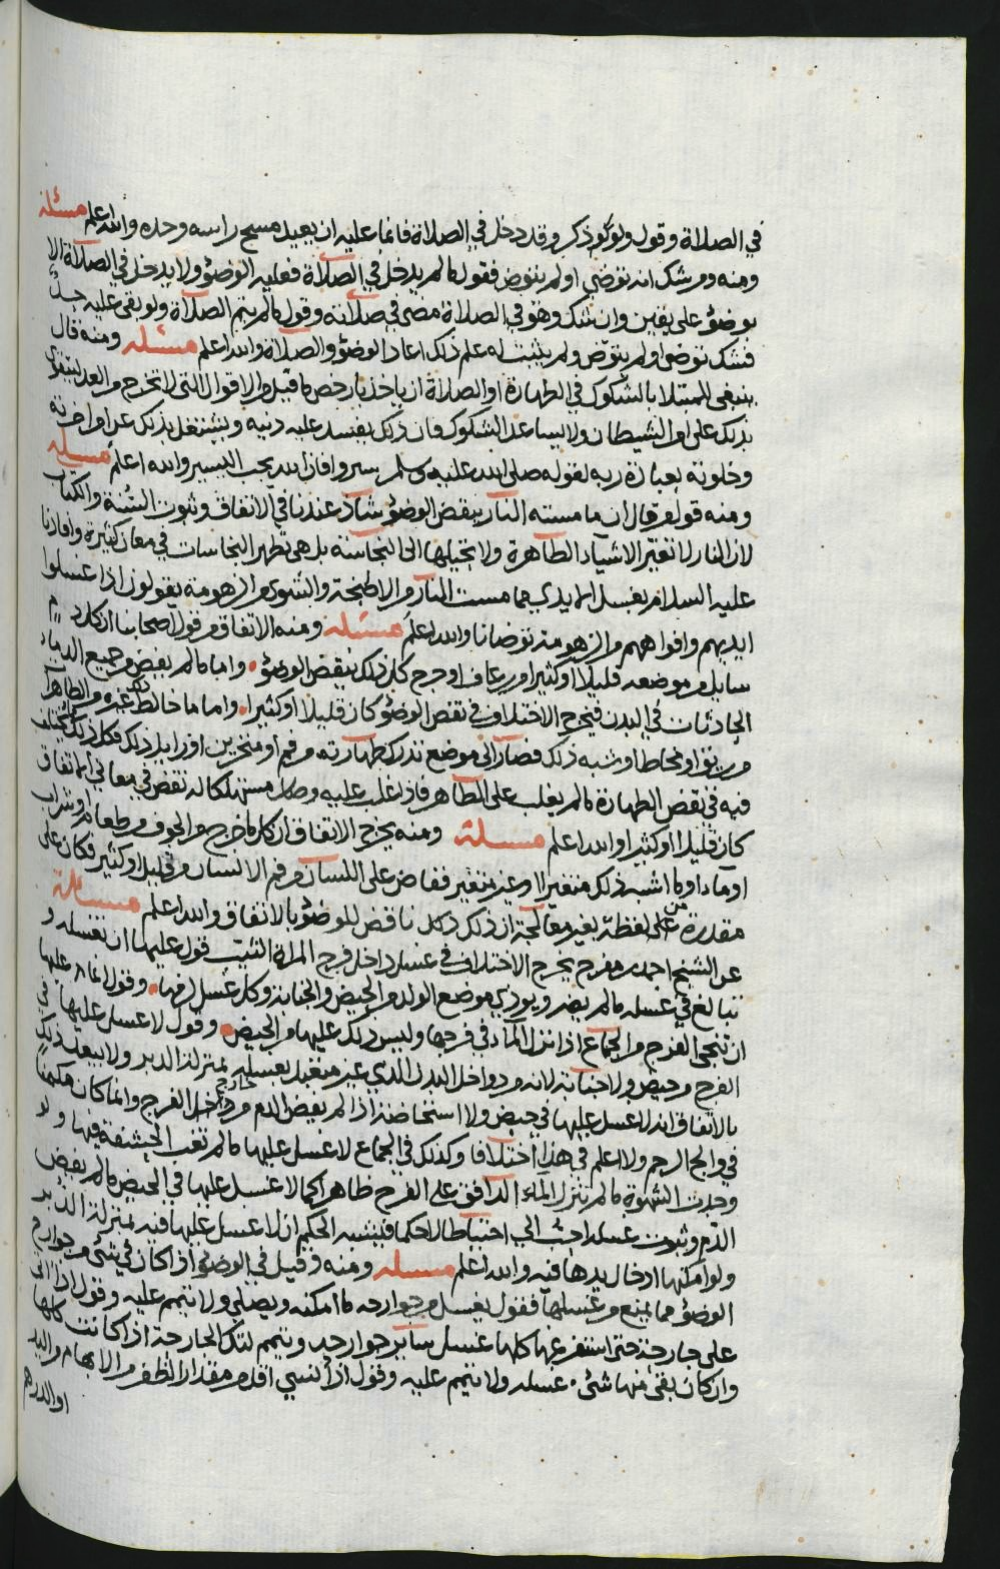 في الصلاة وقول ولو ذكر وقد دخل في الصلاة فانما عليه ان يعيد مسح راسه وحده والله اعلم مسئلة
ومنه ومن شك انه توضى او لم يتوض فقول ما لم يدخل في الصلاة فعليه الوضؤ ولا يدخل في الصلاة الا
بوضؤ على يقين وان شك وهو في الصلاة مضى في صلاته وقول ما لم يتم الصلاة ولو بقي عليه حد
فشك توضى او لم يتوض ولم يثبت له علم ذلك اعاد الوضؤ والصلاة والله اعلم مسئله ومنه قال
ينبغي للمبتلا بالشكوك في الطهارة او الصلاة ان ياخذ بارخص ما قيل من الاقوال التي لا تخرج من العدل ليتقوى
بذلك على امر الشيطان ولا يساعد الشكوك فان ذلك يفسد عليه دينه ويشتغل بذلك عن امر اخرته
وخلوته بعبادة ربه لقوله صلى الله عليه وسلم يسروا فان الله يحب اليسير والله اعلم مسئله
ومنه قول من قال ان ما مسته النار ينقض الوضؤ شاذ عندنا في الاتفاق وثبوت السنة والكتاب
لان النار لا تغير الاشياء الطاهرة ولا تحيلها الى النجاسة بل هي تطهر النجاسات في معان كثيرة وامرنا
عليه السلام بغسل الايدي مما مست النار من الاطبخة والشوى من الزهومة يقولون اذا غسلوا
ايديهم وافواههم من الزهومة توضانا والله اعلم مسئله ومنه الاتفاق من قول اصحابنا ان كل دم
سايل من موضعه قليلا او كثيرا من رعاف او جرح كل ذلك ينقض الوضؤ واما ما لم يفض من جميع الدماء
الحادثات في البدن فيخرج الاختلاف في نقض الوضؤ كان قليلا او كثيرا واما ما خالط غيره من الطاهرات
من بزاق او مخاط او شبه ذلك فصار الى موضع تدرك طهارته من فم او منخرين او زايل ذلك فكل ذلك يختلف
فيه في نقض الطهارة ما لم يغلب على الطاهر فاذا غلب عليه وصار مستهلكا له نقض في معاني الاتفاق
كان قليلا او كثيرا والله اعلم مسئلة ومنه يخرج الاتفاق ان كل ما خرج من الجوف من طعام او شراب
او ماء او ما اشبه ذلك متغيرا او غير متغير ففاض على اللسان من فم الانسان من قليل او كثير فكان على
مقدرة من على لفظه بغير معالجة ان ذلك كل ناقض للوضؤ بالاتفاق والله اعلم مسئلة
عن الشيخ احمد بن مفرج يخرج الاختلاف في غسل داخل فرج المراة الثيب قول عليها ان تغسله و
تبالغ في غسله ما لم يضر ويوذي موضع الولد من الحيض والجنابة وكل غسل لزمها وقول انما عليها
ان تنجي الفرج من الجماع اذا انزل الماء في فرجها وليس ذلك عليها من الحيض وقول لا غسل عليها في
الفرج من حيض ولا جنابة لانه من دواخل البدن الذي غير متعبد بغسله بمنزلة الدبر ولا يبعد ذلك
بالاتفاق انه لا غسل عليها في حيض ولا استحاضة اذا لم يفض الدم من داخل الفرج خارج وانما كان مكمنا
في والج الرحم ولا اعلم في هذا اختلافا وكذلك في الجماع لا غسل عليها ما لم تغب الحشفة فيها ولا
وجدت الشهوة ما لم ينزل الماء الدافق على الفرج ظاهرا كما لا غسل عليها في الحيض ما لم يفض
الدم وثبوت غسله احب الي احتياطا لا حكما فيشبه الحكم ان لا غسل عليها فيه بمنزلة الدبر
ولو امكنها ادخال يدها فيه والله اعلم مسئله ومنه وقيل في الوضؤ اذا كان في شئ من جوارح
الوضؤ مما يمنع من غسلها فقول يغسل من جوارحه ما امكنه ويصلي ولا تيمم عليه وقول اذا اتى
على جارحة حتى استفرغها كلها غسل ساير جوارحه وتيمم لتلك الجارحة اذا كانت كلها
وان كان بقي منها شئ غسله ولا تيمم عليه وقول اذا نسي اقل من مقدار الظفر من الابهام من اليد
او الدرهم